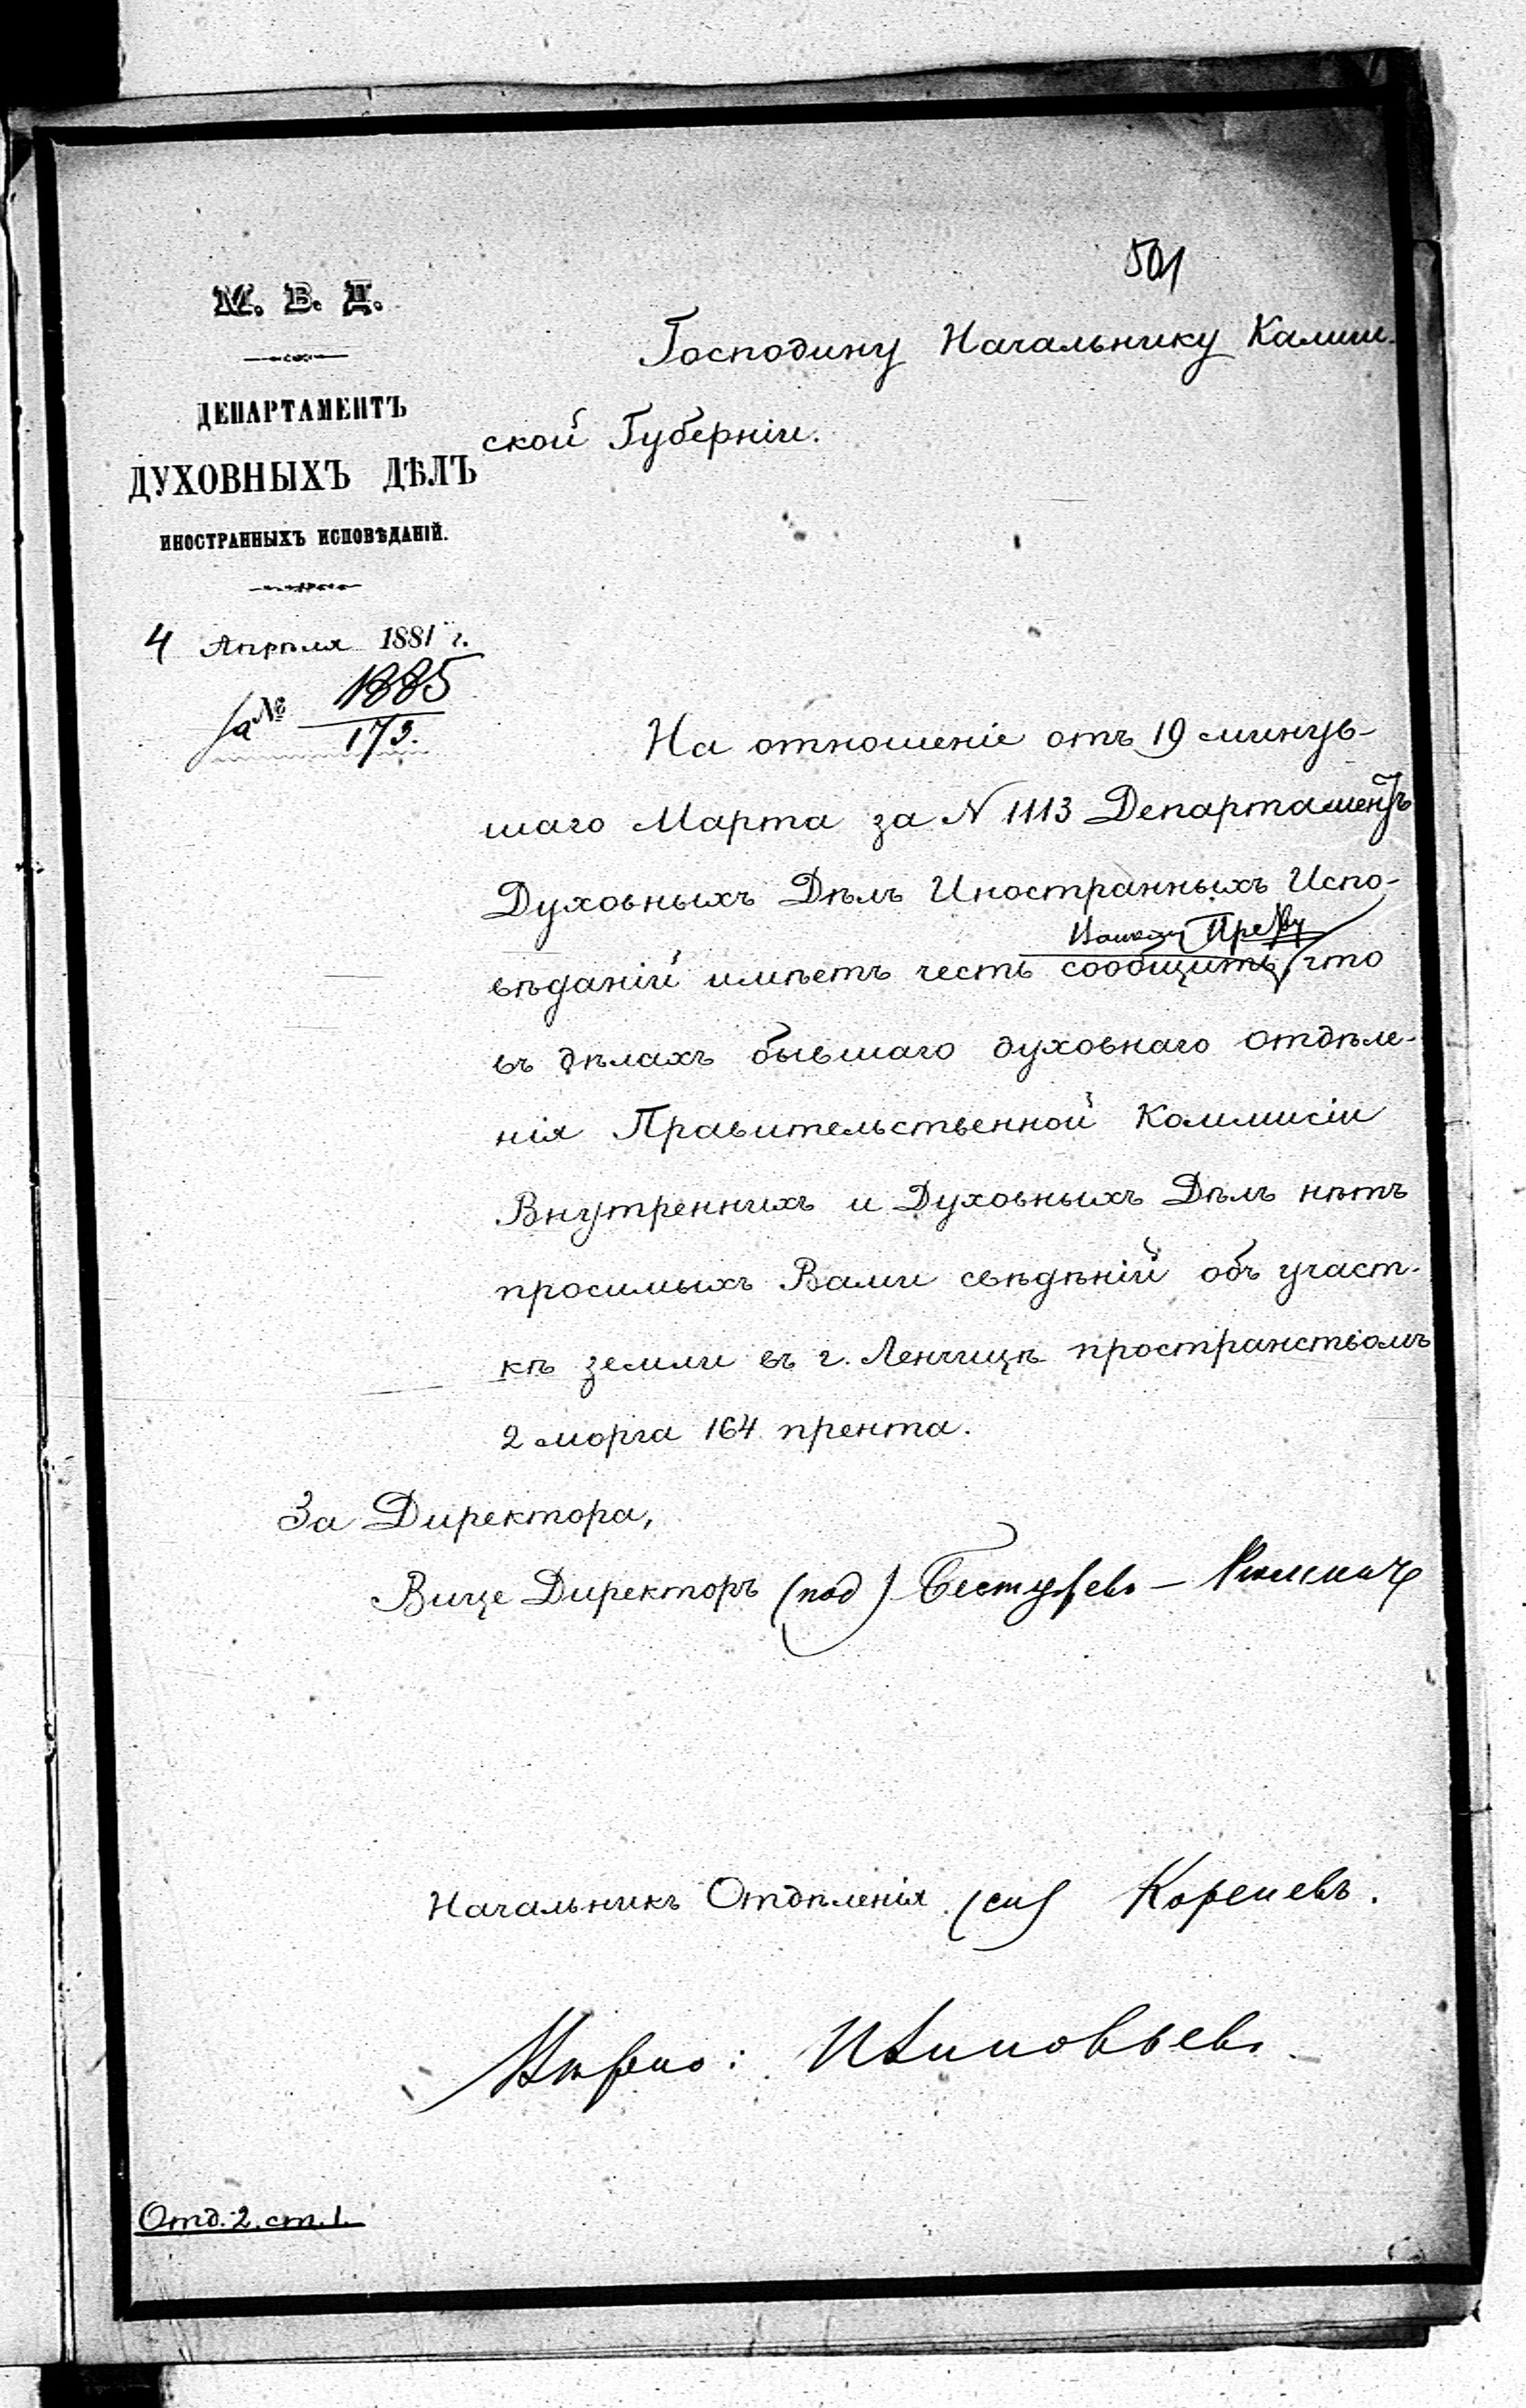 501
М. В. Д.
ДЕПАРТАМЕНТЪ
ДУХОВНЫХЪ ДѢЛЪ
ИНОСТРАННЫХЪ ИСПОВѢДАНІЙ.
4 Апрѣля 1881 г.
За № 1885
173.
Господину Начальнику Калиш-
ской Губерніи.
На отношеніе отъ 19 минув-
шаго Марта за N 1113 Департаментъ
Духовныхъ Дѣлъ Иностранныхъ Испо-
Вашему Прев-ву
вѣданій имѣетъ честь сообщить что
въ дѣлахъ бывшаго духовнаго отдѣле-
нія Правительственной Коммисіи
Внутреннихъ и Духовныхъ Дѣлъ нѣтъ
просимыхъ Вами свѣдѣній объ участ-
кѣ земли въ г. Ленчицѣ пространствомъ
2 морга 164 прента.
За Директора,
Вице Директоръ (под) Бестужевъ-Рюминъ
Начальникъ Отдѣленія (сп)
Вѣрно:
Отд. 2. ст. 1.